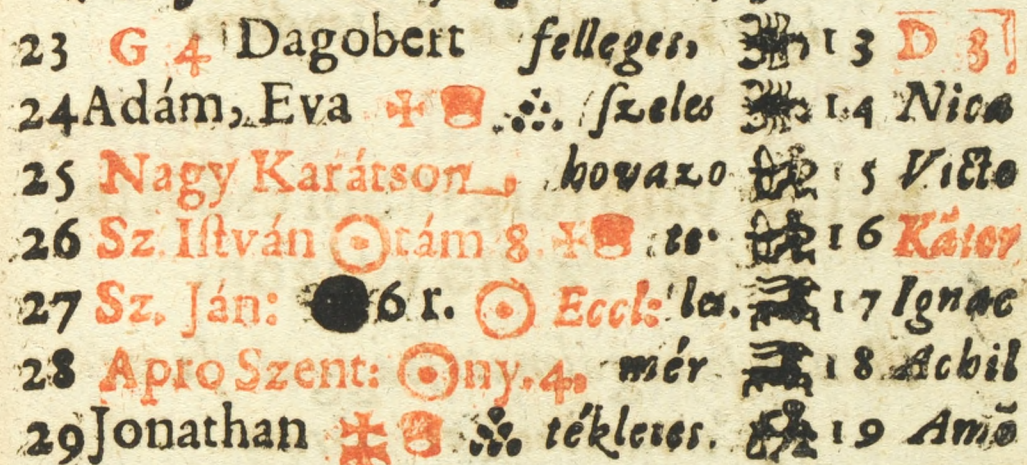 23 G 4 Dagobert felleges, 13 D 3
24 Adám, Eva ſzeles 14 Nica
25 Nagy Karátson, hovazo 15 Victo
26 Sz. Iſtván ☉ tám 8. te- 16 Kátor
27 Sz. Ján: ● 6 r. ☉ Eccl: les. 17 Ignac
28 Apro Szent: ☉ ny. 4. mér 18 Achil
29 Jonathan tékletes. 19 Amō